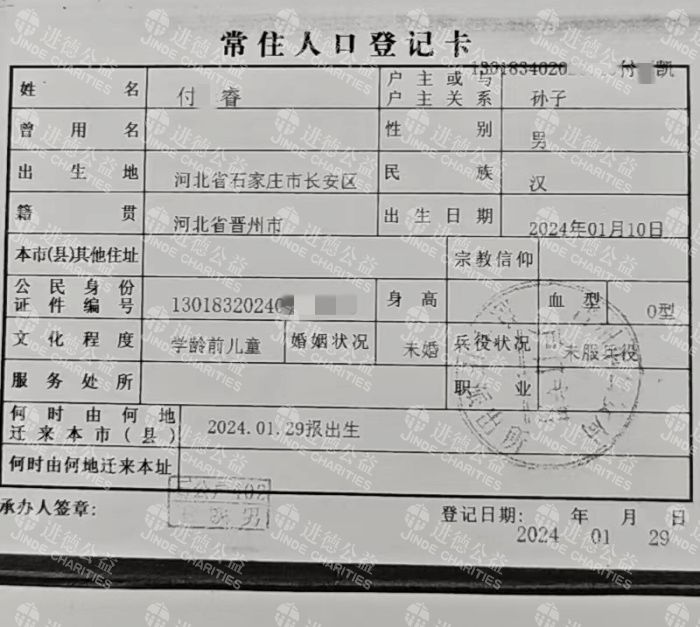 常住人口登记卡
1301834020 付 凯
姓名 付睿 户主或与户主关系 孙子
曾用名 性别 男
出生地 河北省石家庄市长安区 民族 汉
籍贯 河北省晋州市 出生日期 2024年01月10日
本市(县)其他住址 宗教信仰
公民身份证件编号 1301832024 身高 血型 O型
文化程度 学龄前儿童 婚姻状况 未婚 兵役状况 未服兵役
服务处所 职业
何时由何地迁来本市(县) 2024.01.29报出生
何时由何地迁来本址
承办人签章: 登记日期: 2024 年 01 月 29 日
进德公益
JINDE CHARITIES